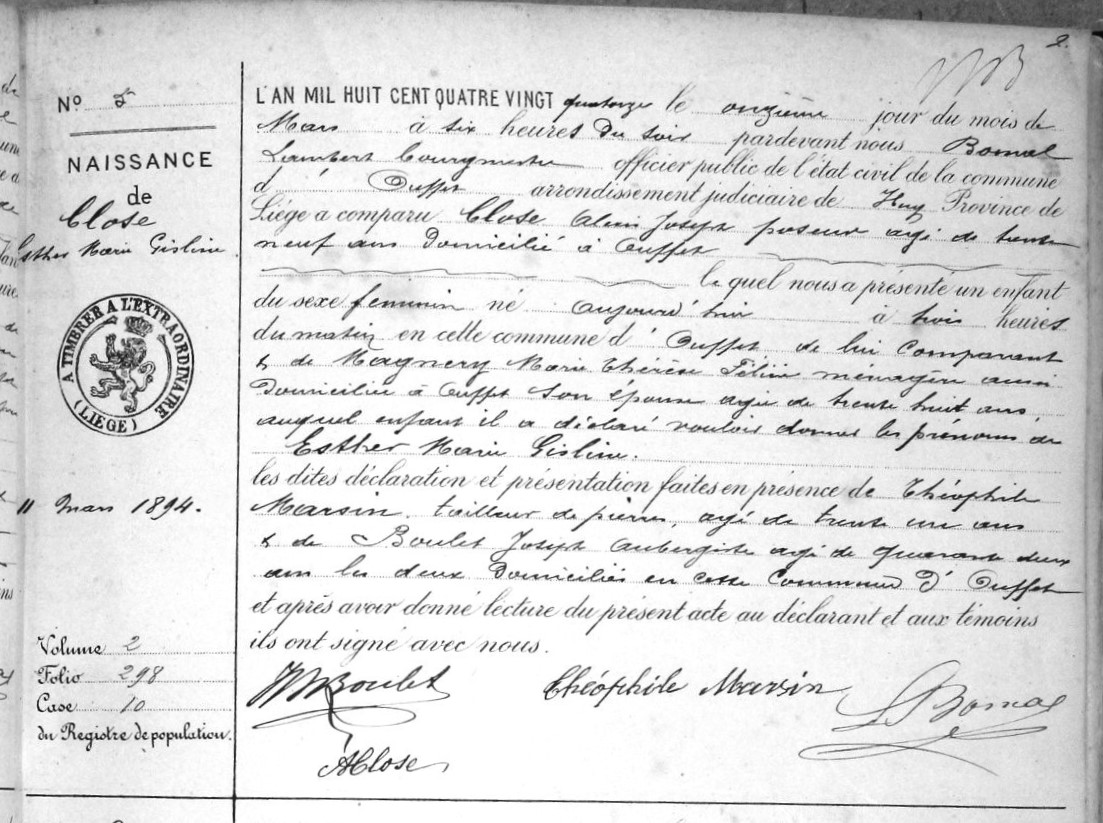 2.
No 5
NAISSANCE
de
Close
Esther Marie Gisline
A TIMBRER A L'EXTRAORDINAIRE
(LIEGE)
11 Mars 1894.
Volume 2
Folio 298
Case 10
du Registre de population.
L'AN MIL HUIT CENT QUATRE VINGT quatorze le onzième jour du mois de
Mars à six heures du soir pardevant nous Bomal
Lambert bourgmestre officier public de l'état civil de la commune
d' Ouffet arrondissement judiciaire de Huy Province de
Liége a comparu Close Alexis Joseph poseur agé de trente
neuf ans domicilié à Ouffet
le quel nous a présenté un enfant
du sexe feminin né aujourd'hui à trois heures
du matin en cette commune d' Ouffet de lui comparant
& de Magnery Marie Thérèse Félicie ménagère aussi
domiciliée à Ouffet son épouse agée de trente huit ans
auquel enfant il a déclaré vouloir donner les prénoms de
Esther Marie Gisline.
les dites déclaration et présentation faites en présence de Théophile
Marsin, tailleur de pierres, agé de trente un ans
& de Boulet Joseph aubergiste agé de quarante deux
ans les deux domiciliés en cette commune d' Ouffet
et après avoir donné lecture du présent acte au déclarant et aux témoins
ils ont signé avec nous.
Boulet Théophile Marsin L Bomal
AClose